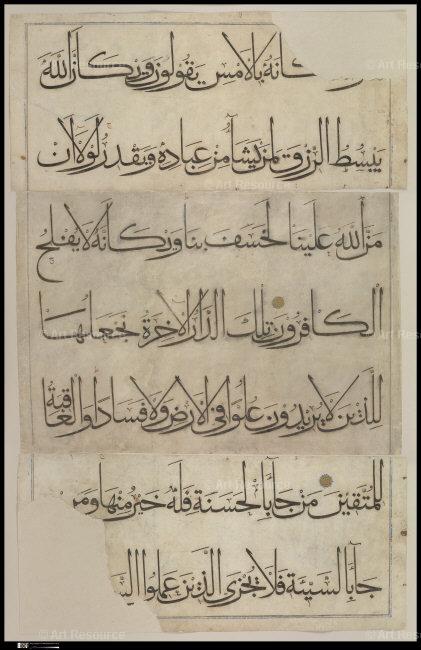 كانه بالامس يقولون ويكان الله
يبسط الرزق لمن يشآ من عباده ويقدر لولا ان
من الله علينا لخسف بنا ويكانه لا يفلح
الكافرون تلك الدار الاخرة نجعلها
للذين لا يريدون علوا في الارض ولا فسادا والعاقبة
للمتقين من جآ بالحسنة فله خير منها ومن
جآ بالسيئة فلا يجزى الذين عملوا
© Art Resource